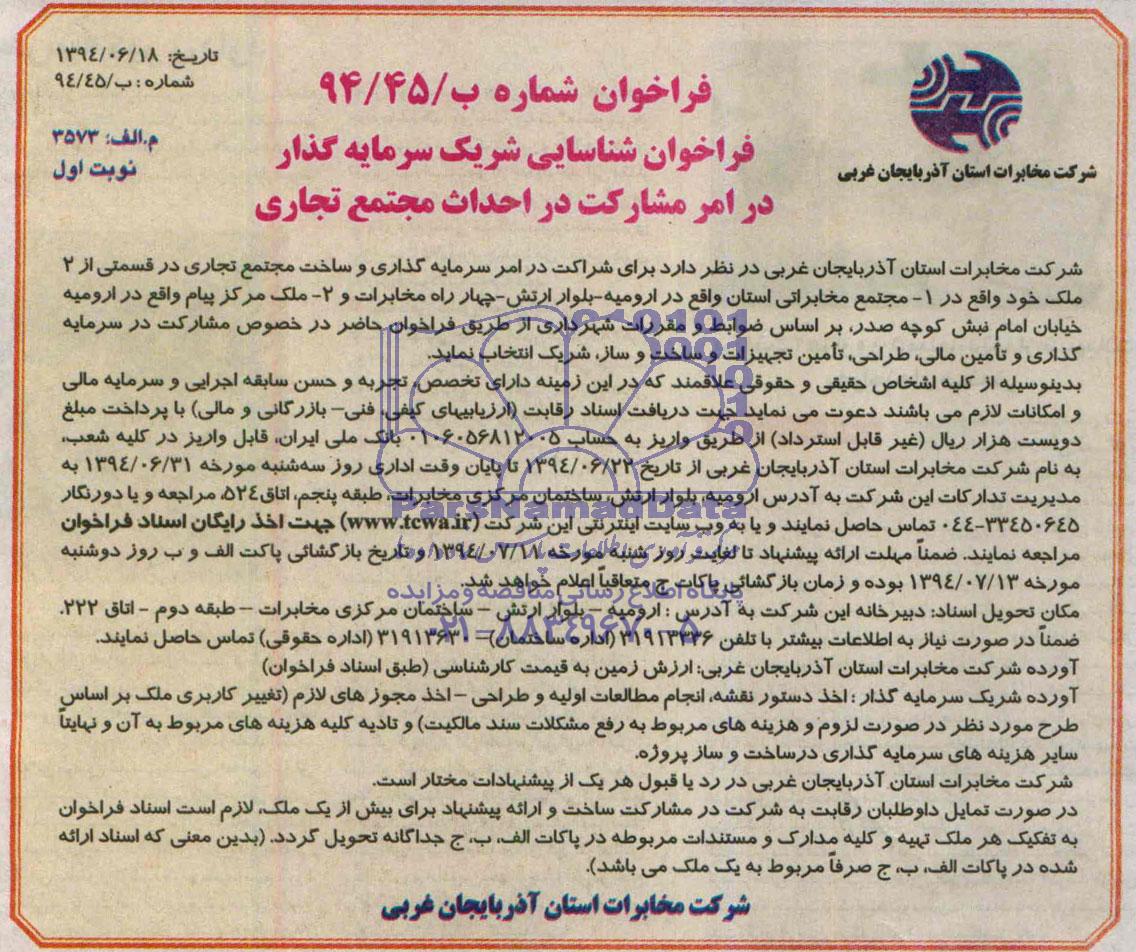 تاریخ: ۱۳۹٤/۰۶/۱۸
شماره: ب/۹٤/٤۵
م.الف: ۳۵۷۳
نوبت اول
شرکت مخابرات استان آذربایجان غربی
فراخوان شماره ب/۹۴/۴۵
فراخوان شناسایی شریک سرمایه گذار
در امر مشارکت در احداث مجتمع تجاری
شرکت مخابرات استان آذربایجان غربی در نظر دارد برای شراکت در امر سرمایه گذاری و ساخت مجتمع تجاری در قسمتی از ۲
ملک خود واقع در ۱- مجتمع مخابراتی استان واقع در ارومیه-بلوار ارتش-چهار راه مخابرات و ۲- ملک مرکز پیام واقع در ارومیه
خیابان امام نبش کوچه صدر، بر اساس ضوابط و مقررات شهرداری از طریق فراخوان حاضر در خصوص مشارکت در سرمایه
گذاری و تأمین مالی، طراحی، تأمین تجهیزات و ساخت و ساز، شریک انتخاب نماید.
بدینوسیله از کلیه اشخاص حقیقی و حقوقی علاقمند که در این زمینه دارای تخصص، تجربه و حسن سابقه اجرایی و سرمایه مالی
و امکانات لازم می باشند دعوت می نماید جهت دریافت اسناد رقابت (ارزیابیهای کیفی، فنی– بازرگانی و مالی) با پرداخت مبلغ
دویست هزار ریال (غیر قابل استرداد) از طریق واریز به حساب ۰۱۰۶۰۵۶۸۱۲۰۰۵ بانک ملی ایران، قابل واریز در کلیه شعب،
به نام شرکت مخابرات استان آذربایجان غربی از تاریخ ۱۳۹٤/۰۶/۲۲ تا پایان وقت اداری روز سه‌شنبه مورخه ۱۳۹٤/۰۶/۳۱ به
مدیریت تدارکات این شرکت به آدرس ارومیه، بلوار ارتش، ساختمان مرکزی مخابرات، طبقه پنجم، اتاق۵۲٤، مراجعه و یا دورنگار
۰٤٤-۳۳٤۵۰۶٤۵ تماس حاصل نمایند و یا به وب سایت اینترنتی این شرکت (www.tcwa.ir) جهت اخذ رایگان اسناد فراخوان
مراجعه نمایند. ضمناً مهلت ارائه پیشنهاد تا لغایت روز شنبه مورخه ۱۳۹٤/۰۷/۱۱ و تاریخ بازگشائی پاکت الف و ب روز دوشنبه
مورخه ۱۳۹٤/۰۷/۱۳ بوده و زمان بازگشائی پاکات ج متعاقباً اعلام خواهد شد.
مکان تحویل اسناد: دبیرخانه این شرکت به آدرس : ارومیه – بلوار ارتش – ساختمان مرکزی مخابرات – طبقه دوم - اتاق ۲۲۲.
ضمناً در صورت نیاز به اطلاعات بیشتر با تلفن ۳۱۹۱۳۳۳۶ (اداره ساختمان)– ۳۱۹۱۳۶۳۰ (اداره حقوقی) تماس حاصل نمایند.
آورده شرکت مخابرات استان آذربایجان غربی: ارزش زمین به قیمت کارشناسی (طبق اسناد فراخوان)
آورده شریک سرمایه گذار : اخذ دستور نقشه، انجام مطالعات اولیه و طراحی – اخذ مجوز های لازم (تغییر کاربری ملک بر اساس
طرح مورد نظر در صورت لزوم و هزینه های مربوط به رفع مشکلات سند مالکیت) و تادیه کلیه هزینه های مربوط به آن و نهایتاً
سایر هزینه های سرمایه گذاری درساخت و ساز پروژه.
شرکت مخابرات استان آذربایجان غربی در رد یا قبول هر یک از پیشنهادات مختار است.
در صورت تمایل داوطلبان رقابت به شرکت در مشارکت ساخت و ارائه پیشنهاد برای بیش از یک ملک، لازم است اسناد فراخوان
به تفکیک هر ملک تهیه و کلیه مدارک و مستندات مربوطه در پاکات الف، ب، ج جداگانه تحویل گردد. (بدین معنی که اسناد ارائه
شده در پاکات الف، ب، ج صرفاً مربوط به یک ملک می باشد).
شرکت مخابرات استان آذربایجان غربی
ParsNamadData
پایگاه اطلاع رسانی مناقصه و مزایده
۰۲۱–۸۸۳۴۹۶۷۰–۵